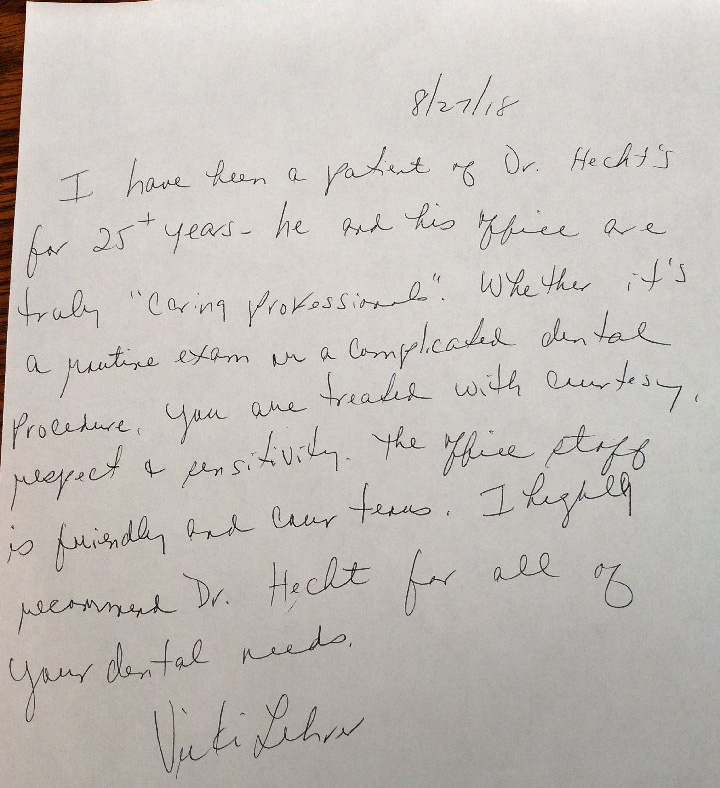 8/27/18
I have been a patient of Dr. Hecht's
for 25+ years - he and his office are
truly "caring professionals". Whether it's
a routine exam or a complicated dental
procedure, you are treated with courtesy,
respect & sensitivity. The office staff
is friendly and courteous. I highly
recommend Dr. Hecht for all of
your dental needs.
Vicki Lehrer